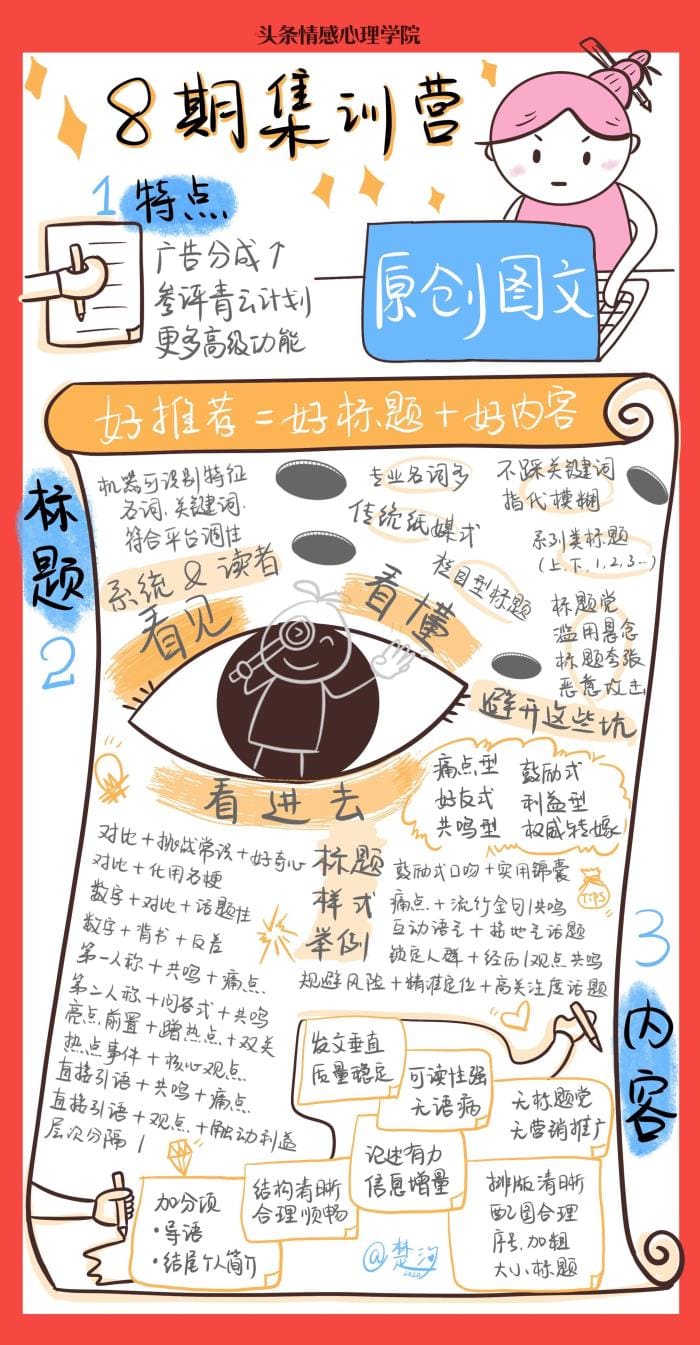 头条情感心理学院
8期集训营
1 特点
广告分成↑
参评青云计划
更多高级功能
原创图文
好推荐=好标题+好内容
标题
2
机器可识别特征
名词.关键词.
符合平台调性
系统&读者
看见
专业名词多
传统纸媒式
栏目型标题
看懂
不踩关键词
指代模糊
系列类标题
(上.下.1.2.3…)
标题党
滥用悬念
标题夸张
恶意攻击
避开这些坑
看进去
痛点型 鼓励式
好友式 利益型
共鸣型 权威转嫁
标题
样式
举例
对比+挑战常识+好奇心
对比+化用名梗
数字+对比+话题性
数字+背书+反差
第一人称+共鸣+痛点
第二人称+问答式+共鸣
亮点前置+蹭热点+双关
热点事件+核心观点
直接引语+共鸣+痛点
直接引语+观点+触动利益
层次分隔 |
鼓励式口吻+实用锦囊
TIPS
痛点+流行金句|共鸣
互动语言+接地气话题
锁定人群+经历|观点共鸣
规避风险+精准定位+高关注度话题
3
内容
发文垂直
质量稳定
可读性强
无语病
无标题党
无营销推广
论述有力
信息增量
结构清晰
合理顺畅
排版清晰
配图合理
序号.加粗
大小标题
加分项
·导语
·结尾个人简介
@楚洵
2020